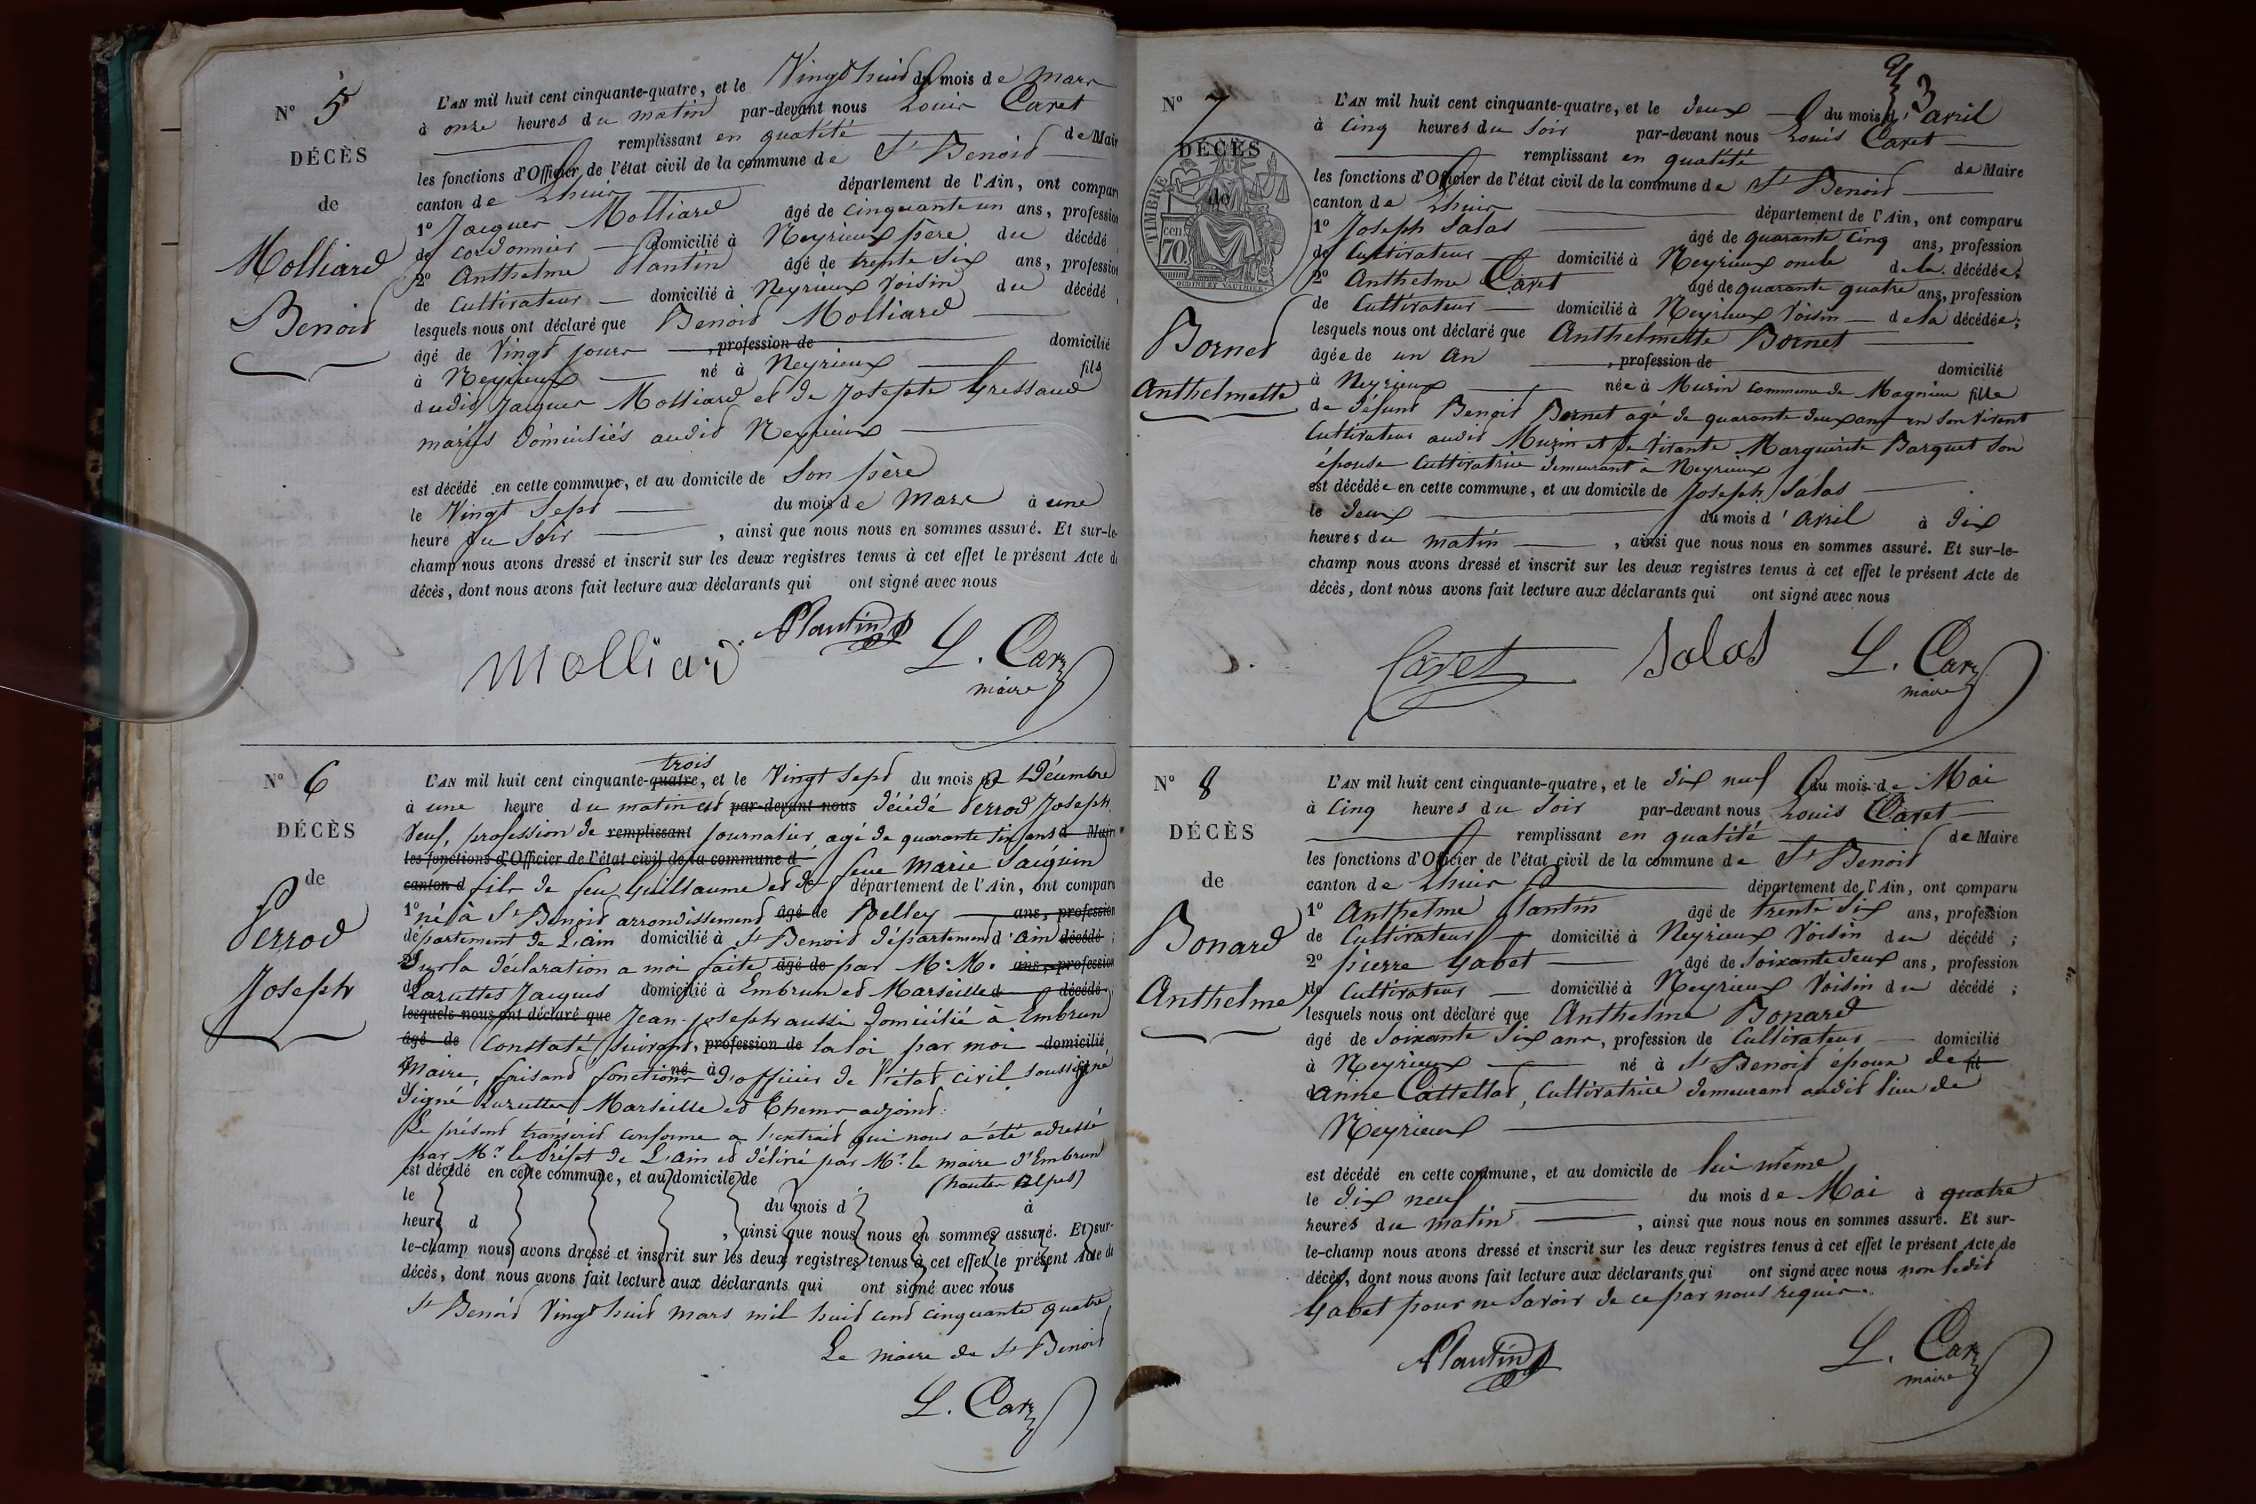 N° 5
DÉCÈS
de
Molliard
Benoid
L'AN mil huit cent cinquante-quatre, et le Vingt huit du mois de mars
à onze heures du matin par-devant nous Louis Caret
remplissant en qualité de Mair
les fonctions d'Officier de l'état civil de la commune de St Benoid
canton de Lhuis département de l'Ain, ont compar
1° Jacques Molliard âgé de cinquante un ans, profession
de cordonnier domicilié à Neyrieux père du décédé
2° Anthelme Plantin âgé de trente six ans, profession
de Cultivateur domicilié à Neyrieux Voisin du décédé
lesquels nous ont déclaré que Benoid Molliard
âgé de Vingt jours , profession de domicilié
à Neyrieux né à Neyrieux fils
dudit Jacques Molliard et de Josephte Gressaud
mariés domiciliés audit Neyrieux
est décédé en cette commune, et au domicile de Son père
le Vingt Sept du mois de Mars à une
heure du Soir , ainsi que nous nous en sommes assuré. Et sur-le-
champ nous avons dressé et inscrit sur les deux registres tenus à cet effet le présent Acte d
décès, dont nous avons fait lecture aux déclarants qui ont signé avec nous
Molliard Plantin L. Caret
maire
N° 6
DÉCÈS
de
Perrod
Joseph
trois
L'AN mil huit cent cinquante-quatre, et le Vingt Sept du mois de Décembre
à une heure du matin est par-devant nous décédé Perrod Joseph
Veuf, profession de remplissant journalier, agé de quarante six ans d Mair
les fonctions d'Officier de l'état civil de la commune d feue Marie Saiquin
canton d fils de feu Guillaume et de département de l'Ain, ont compar
1° né à St Benoid arrondissement âgé de Belley ans, profession
département de L'ain domicilié à St Benoid département d'ain décédé ;
2° Sur la déclaration a moi faite âgé de par M. M. ans, profession
de Lazuttes Jacques domicilié à Embrun et Marseille d décédé
lesquels nous ont déclaré que Jean-joseph aussi domicilié à Embrun
âgé de Constaté suivant, profession de la loi par moi domicilié
Maire, faisant fonctions né à d'officier de l'état civil soussigné
Signé Lazuttes Marseille et Thems adjoint.
Le présent transcrit conforme a l'extrait qui nous a été adressé
par Mr. le Préfet de L'ain et délivré par Mr. le maire d'Embrun
est décédé en cette commune, et au domicile de (hautes Alpes)
le du mois d à
heure d , ainsi que nous nous en sommes assuré. Et sur-
le-champ nous avons dressé et inscrit sur les deux registres tenus à cet effet le présent Acte de
décès, dont nous avons fait lecture aux déclarants qui ont signé avec nous
St Benoid Vingt huit mars mil huit cent cinquante quatre
Le maire de St Benoid
L. Caret
3
N° 7
DÉCÈS
de
TIMBRE
70 cen
Bornet
Anthelmette
L'AN mil huit cent cinquante-quatre, et le deux du mois d'avril
à Cinq heures du Soir par-devant nous Louis Caret
remplissant en qualité de Maire
les fonctions d'Officier de l'état civil de la commune de St Benoid
canton de Lhuis département de l'Ain, ont comparu
1° Joseph Salas âgé de quarante cinq ans, profession
de Cultivateur domicilié à Neyrieux oncle de la décédée;
2° Anthelme Caret âgé de quarante quatre ans, profession
de Cultivateur domicilié à Neyrieux Voisin de la décédée;
lesquels nous ont déclaré que Anthelmette Bornet
âgée de un an , profession de domicilié
à Neyrieux née à Murin commune de Magnieu fille
de défunt Benoit Bornet agé de quarante deux ans en son vivant
Cultivateur audit Murin et de Vivante Marguerite Barquet son
épouse Cultivatrice demeurant à Neyrieux
est décédée en cette commune, et au domicile de Joseph Salas
le deux du mois d'avril à dix
heures du matin , ainsi que nous nous en sommes assuré. Et sur-le-
champ nous avons dressé et inscrit sur les deux registres tenus à cet effet le présent Acte de
décès, dont nous avons fait lecture aux déclarants qui ont signé avec nous
Caret Salas L. Caret
maire
N° 8
DÉCÈS
de
Bonard
Anthelme
L'AN mil huit cent cinquante-quatre, et le dix neuf du mois de Mai
à Cinq heures du Soir par-devant nous Louis Caret
remplissant en qualité de Maire
les fonctions d'Officier de l'état civil de la commune de St Benoid
canton de Lhuis département de l'Ain, ont comparu
1° Anthelme Plantin âgé de trente six ans, profession
de Cultivateur domicilié à Neyrieux Voisin du décédé ;
2° pierre Gabet âgé de Soixante deux ans, profession
de Cultivateur domicilié à Neyrieux Voisin du décédé ;
lesquels nous ont déclaré que Anthelme Bonard
âgé de Soixante Six ans, profession de Cultivateur domicilié
à Neyrieux né à St Benoit époux de fil
d'anne Cattellat, Cultivatrice demeurant audit lieu de
Neyrieux
est décédé en cette commune, et au domicile de lui même
le dix neuf du mois de Mai à quatre
heures du matin , ainsi que nous nous en sommes assuré. Et sur-
le-champ nous avons dressé et inscrit sur les deux registres tenus à cet effet le présent Acte de
décès, dont nous avons fait lecture aux déclarants qui ont signé avec nous non ledit
Gabet pour ne Savoir de ce par nous requis.
Plantin L. Caret
maire